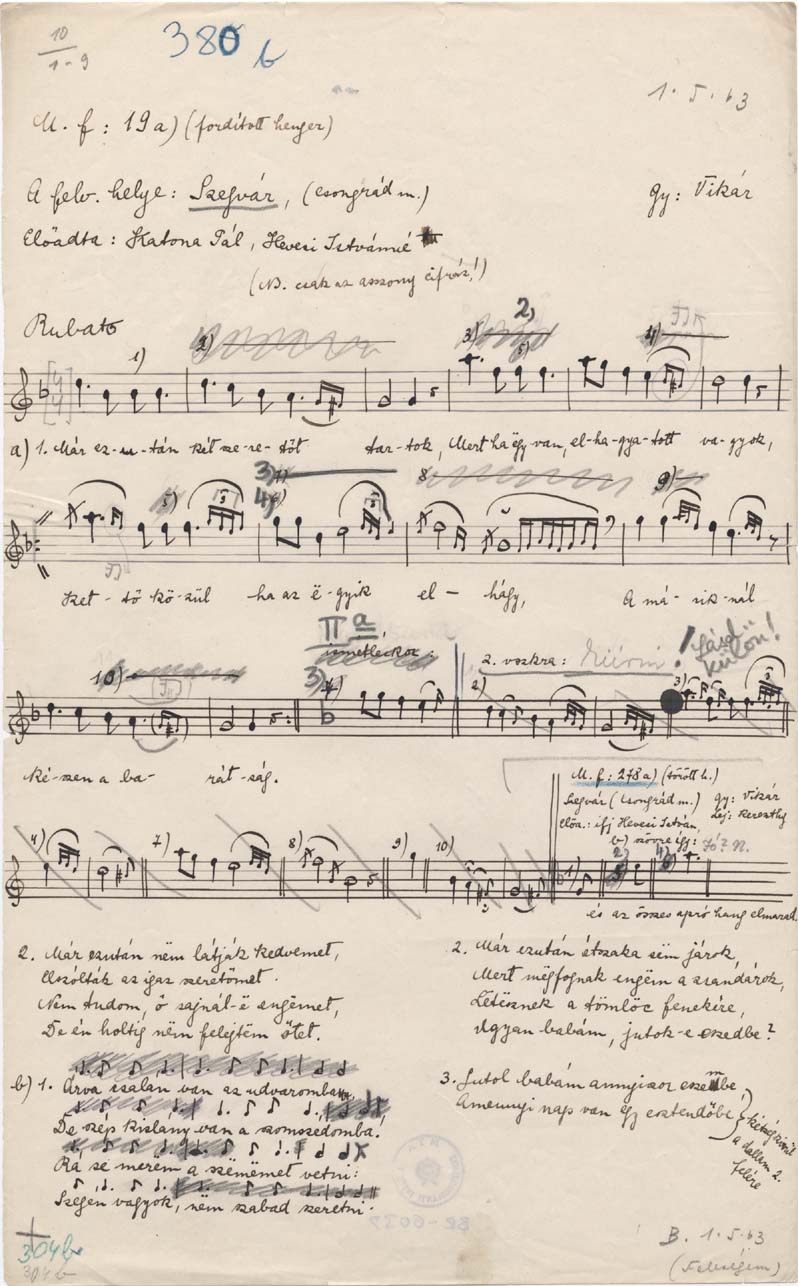 10
1-9
380 b
1.5.63
M. f: 19a) (fordított henger)
A felv. helye: Szegvár, (Csongrád m.)
gy: Vikár
Előadta: Katona Pál, Hevesi Istvánné
(NB. csak az asszony cifráz!)
Rubato
1) 2) 3) 2, 5) 4)
a) 1. Már ez-u-tán két sze-re-töt tar-tok, Mert ha ëgy van, el-ha-gya-tott va-gyok,
5) 3) 4) 8 9)
Ket-tő kö-zül ha az ë-gyik el-hágy, A má-sik-nál
II a
ismétléskor:
2. vszkra:
! Lásd
külön!
10) 3) 2) 3)
Ké-szen a ba-rát-ság.
M. f: 278a) (törött h.)
Szegvár (Csongrád m.) gy: Vikár
Előa.: ifj Hevesi István, Lej: Kereszthy
b) szövre így:
4) 7) 8) 9) 10) 1) 2) 4)
és az összes apró hang elmarad.
2. Már ezután nëm látják kedvemet,
Az igaz szeretőmet.
Nem tudom, ő sajnál-ë engëmet,
De én holtig nëm felejtëm őtet.
b) 1. Árva csalán van az udvaromba,
De szép kislány van a szomszédomba!
Rá se merëm a szëmëmet vetni:
Szegen vagyok, nëm szabad szeretni.
2. Már ezután étszaka sëm járok,
Mert mëgfognak engëm a zsandárok,
Letësznek a tömlöc fenekére,
Ugyan babám, jutok-e eszedbe?
3. Jutol babám annyiszor eszembe,
Amennyi nap van ëgy esztendőbe
a dallam 2.
felére
304b
304b
B. 1.5.63
(Feleségem)